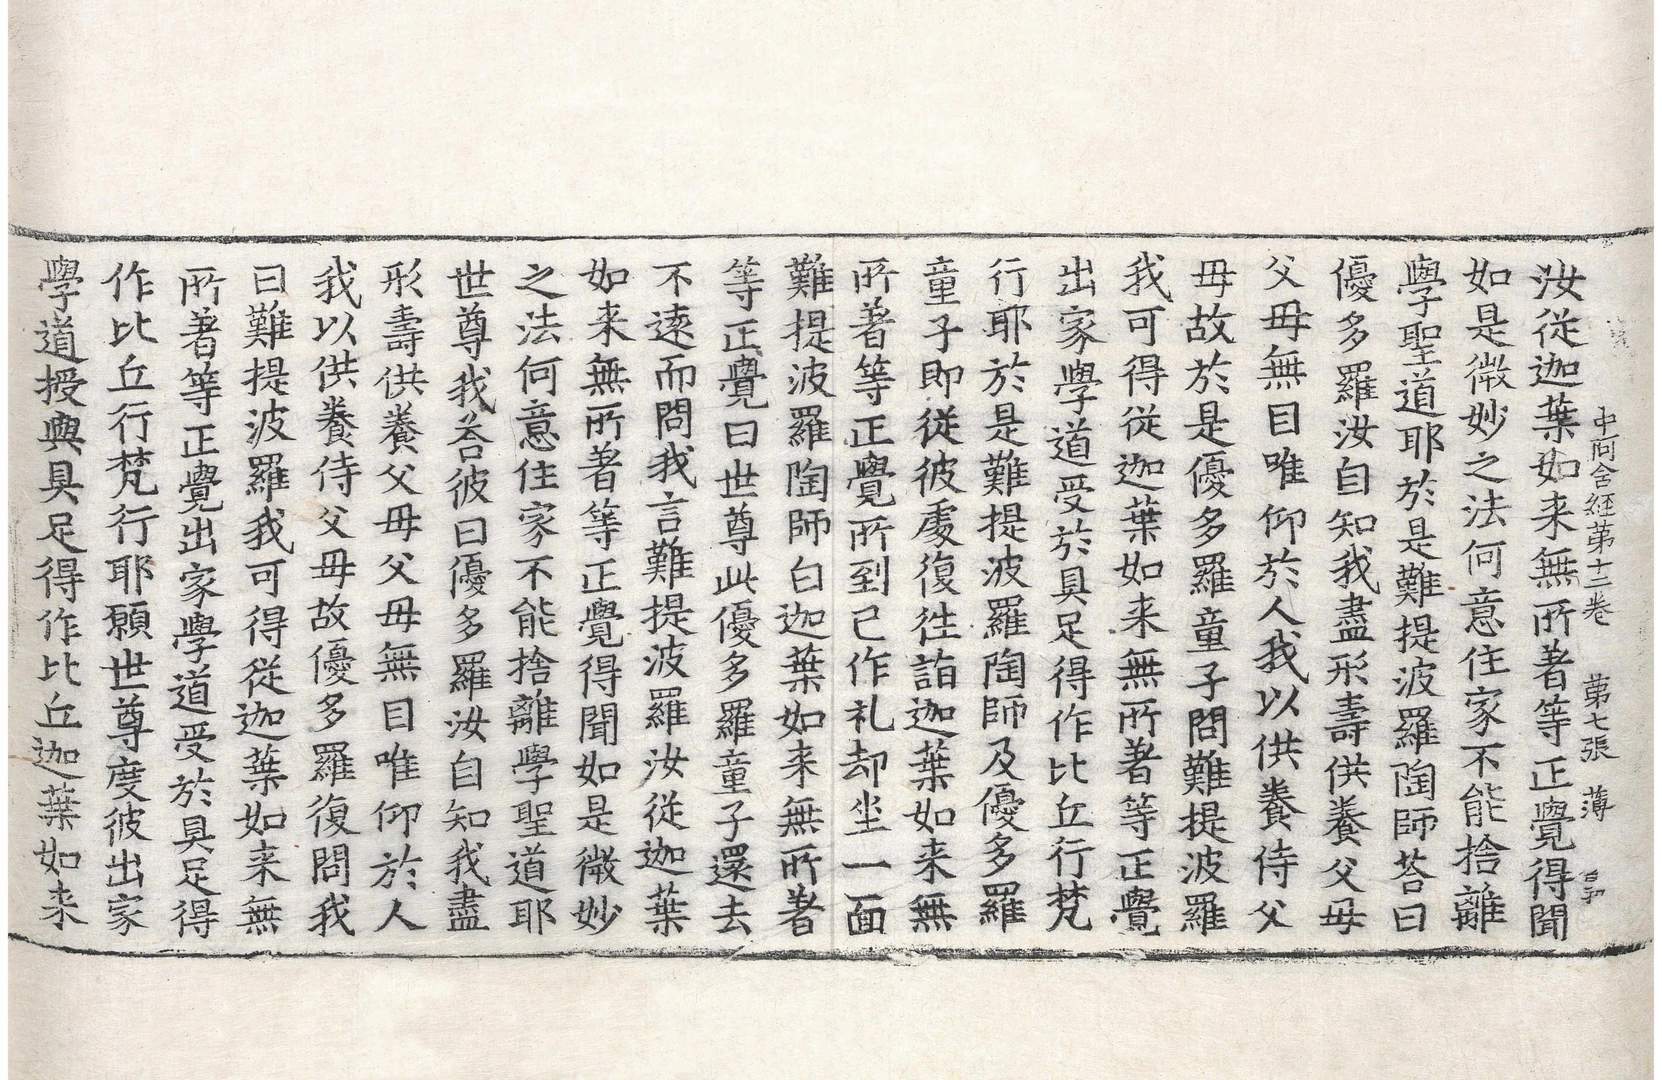 中阿含經苐十二卷 苐七張 薄
汝從迦葉如来無所著等正覺得聞
如是微妙之法何意住家不能捨離
學聖道耶於是難提波羅陶師荅曰
優多羅汝自知我盡形壽供養父母
父母無目唯仰於人我以供養侍父
母故於是優多羅童子問難提波羅
我可得從迦葉如来無所著等正覺
出家學道受於具足得作比丘行梵
行耶於是難提波羅陶師及優多羅
童子即從彼處復徃詣迦葉如来無
所著等正覺所到已作礼却坐一面
難提波羅陶師白迦葉如来無所著
等正覺曰世尊此優多羅童子還去
不遠而問我言難提波羅汝從迦葉
如来無所著等正覺得聞如是微妙
之法何意住家不能捨離學聖道耶
世尊我荅彼曰優多羅汝自知我盡
形壽供養父母父母無目唯仰於人
我以供養侍父母故優多羅復問我
曰難提波羅我可得從迦葉如来無
所著等正覺出家學道受於具足得
作比丘行梵行耶願世尊度彼出家
學道授與具足得作比丘迦葉如来